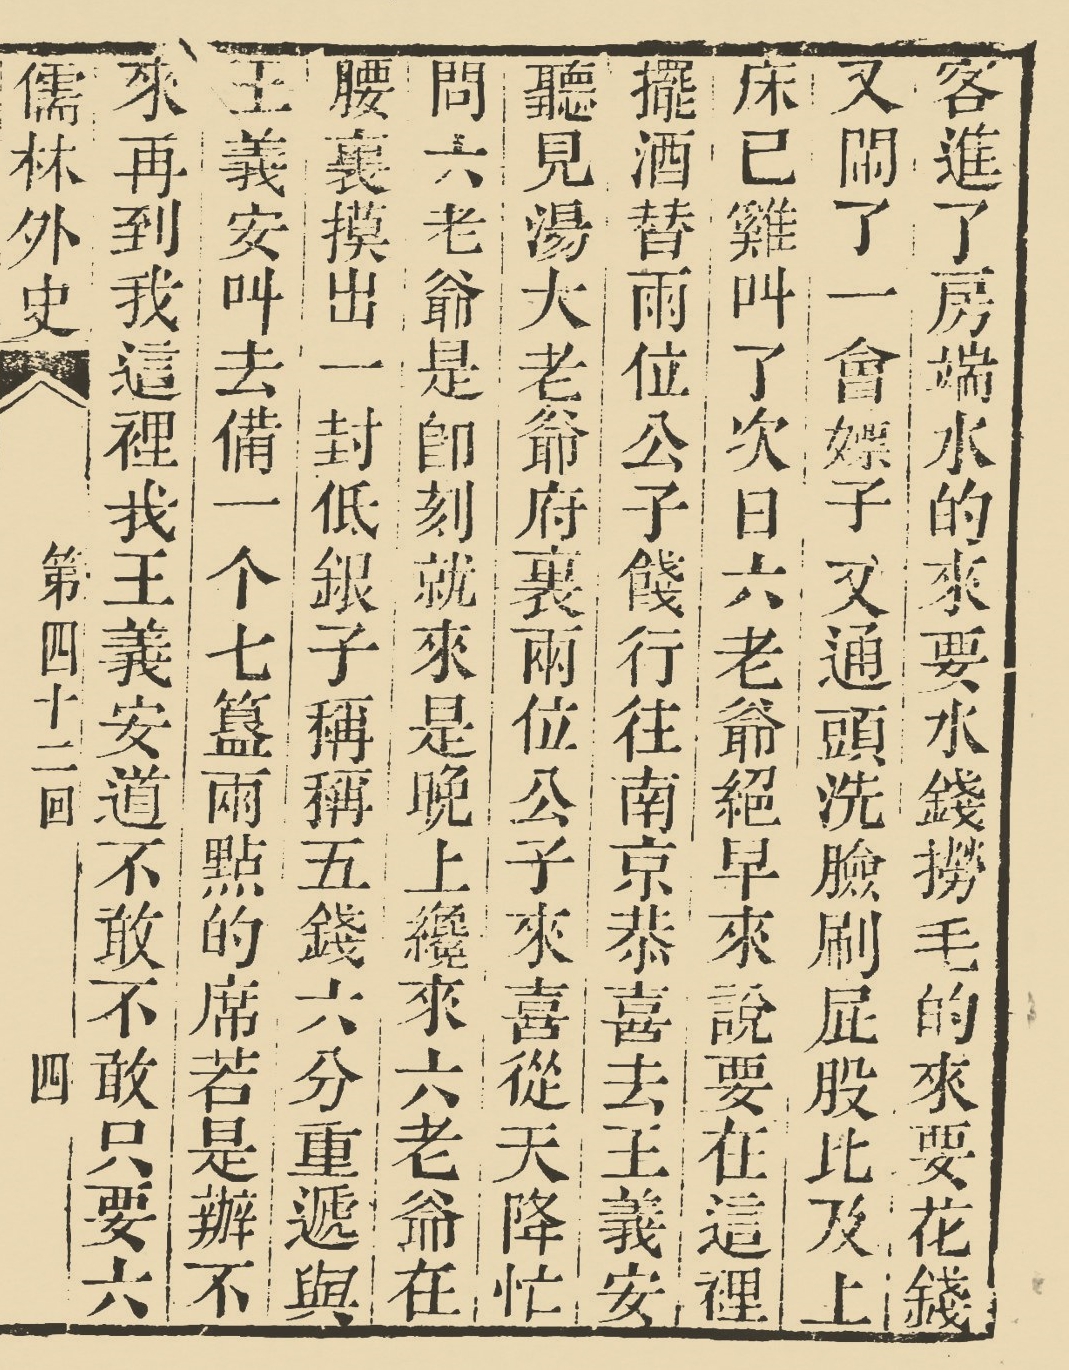 客進了房端水的來要水錢撈毛的來要花錢
又鬧了一會婊子又通頭洗臉刷屁股比及上
床已雞叫了次日六老爺絕早來說要在這裡
擺酒替兩位公子餞行往南京恭喜去王義安
聽見湯大老爺府裏兩位公子來喜從天降忙
問六老爺是卽刻就來是晚上纔來六老爺在
腰裏摸出一封低銀子稱稱五錢六分重遞與
王義安叫去備一个七簋兩點的席若是辦不
來再到我這裡我王義安道不敢不敢只要六
儒林外史 第四十二回 四